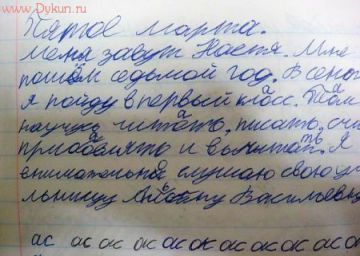 www.Dykun.ru
Пятое марта.
Меня завут Настя. Мне
пошел седьмой год. В сен
я пойду в первый класс. Там
научусь читать, писать,
прибавлять и вычитать. Я
внимательна слушаю свою уч
льницу Васильев
ас ас ас ас ас ас ас ас ас ас ас